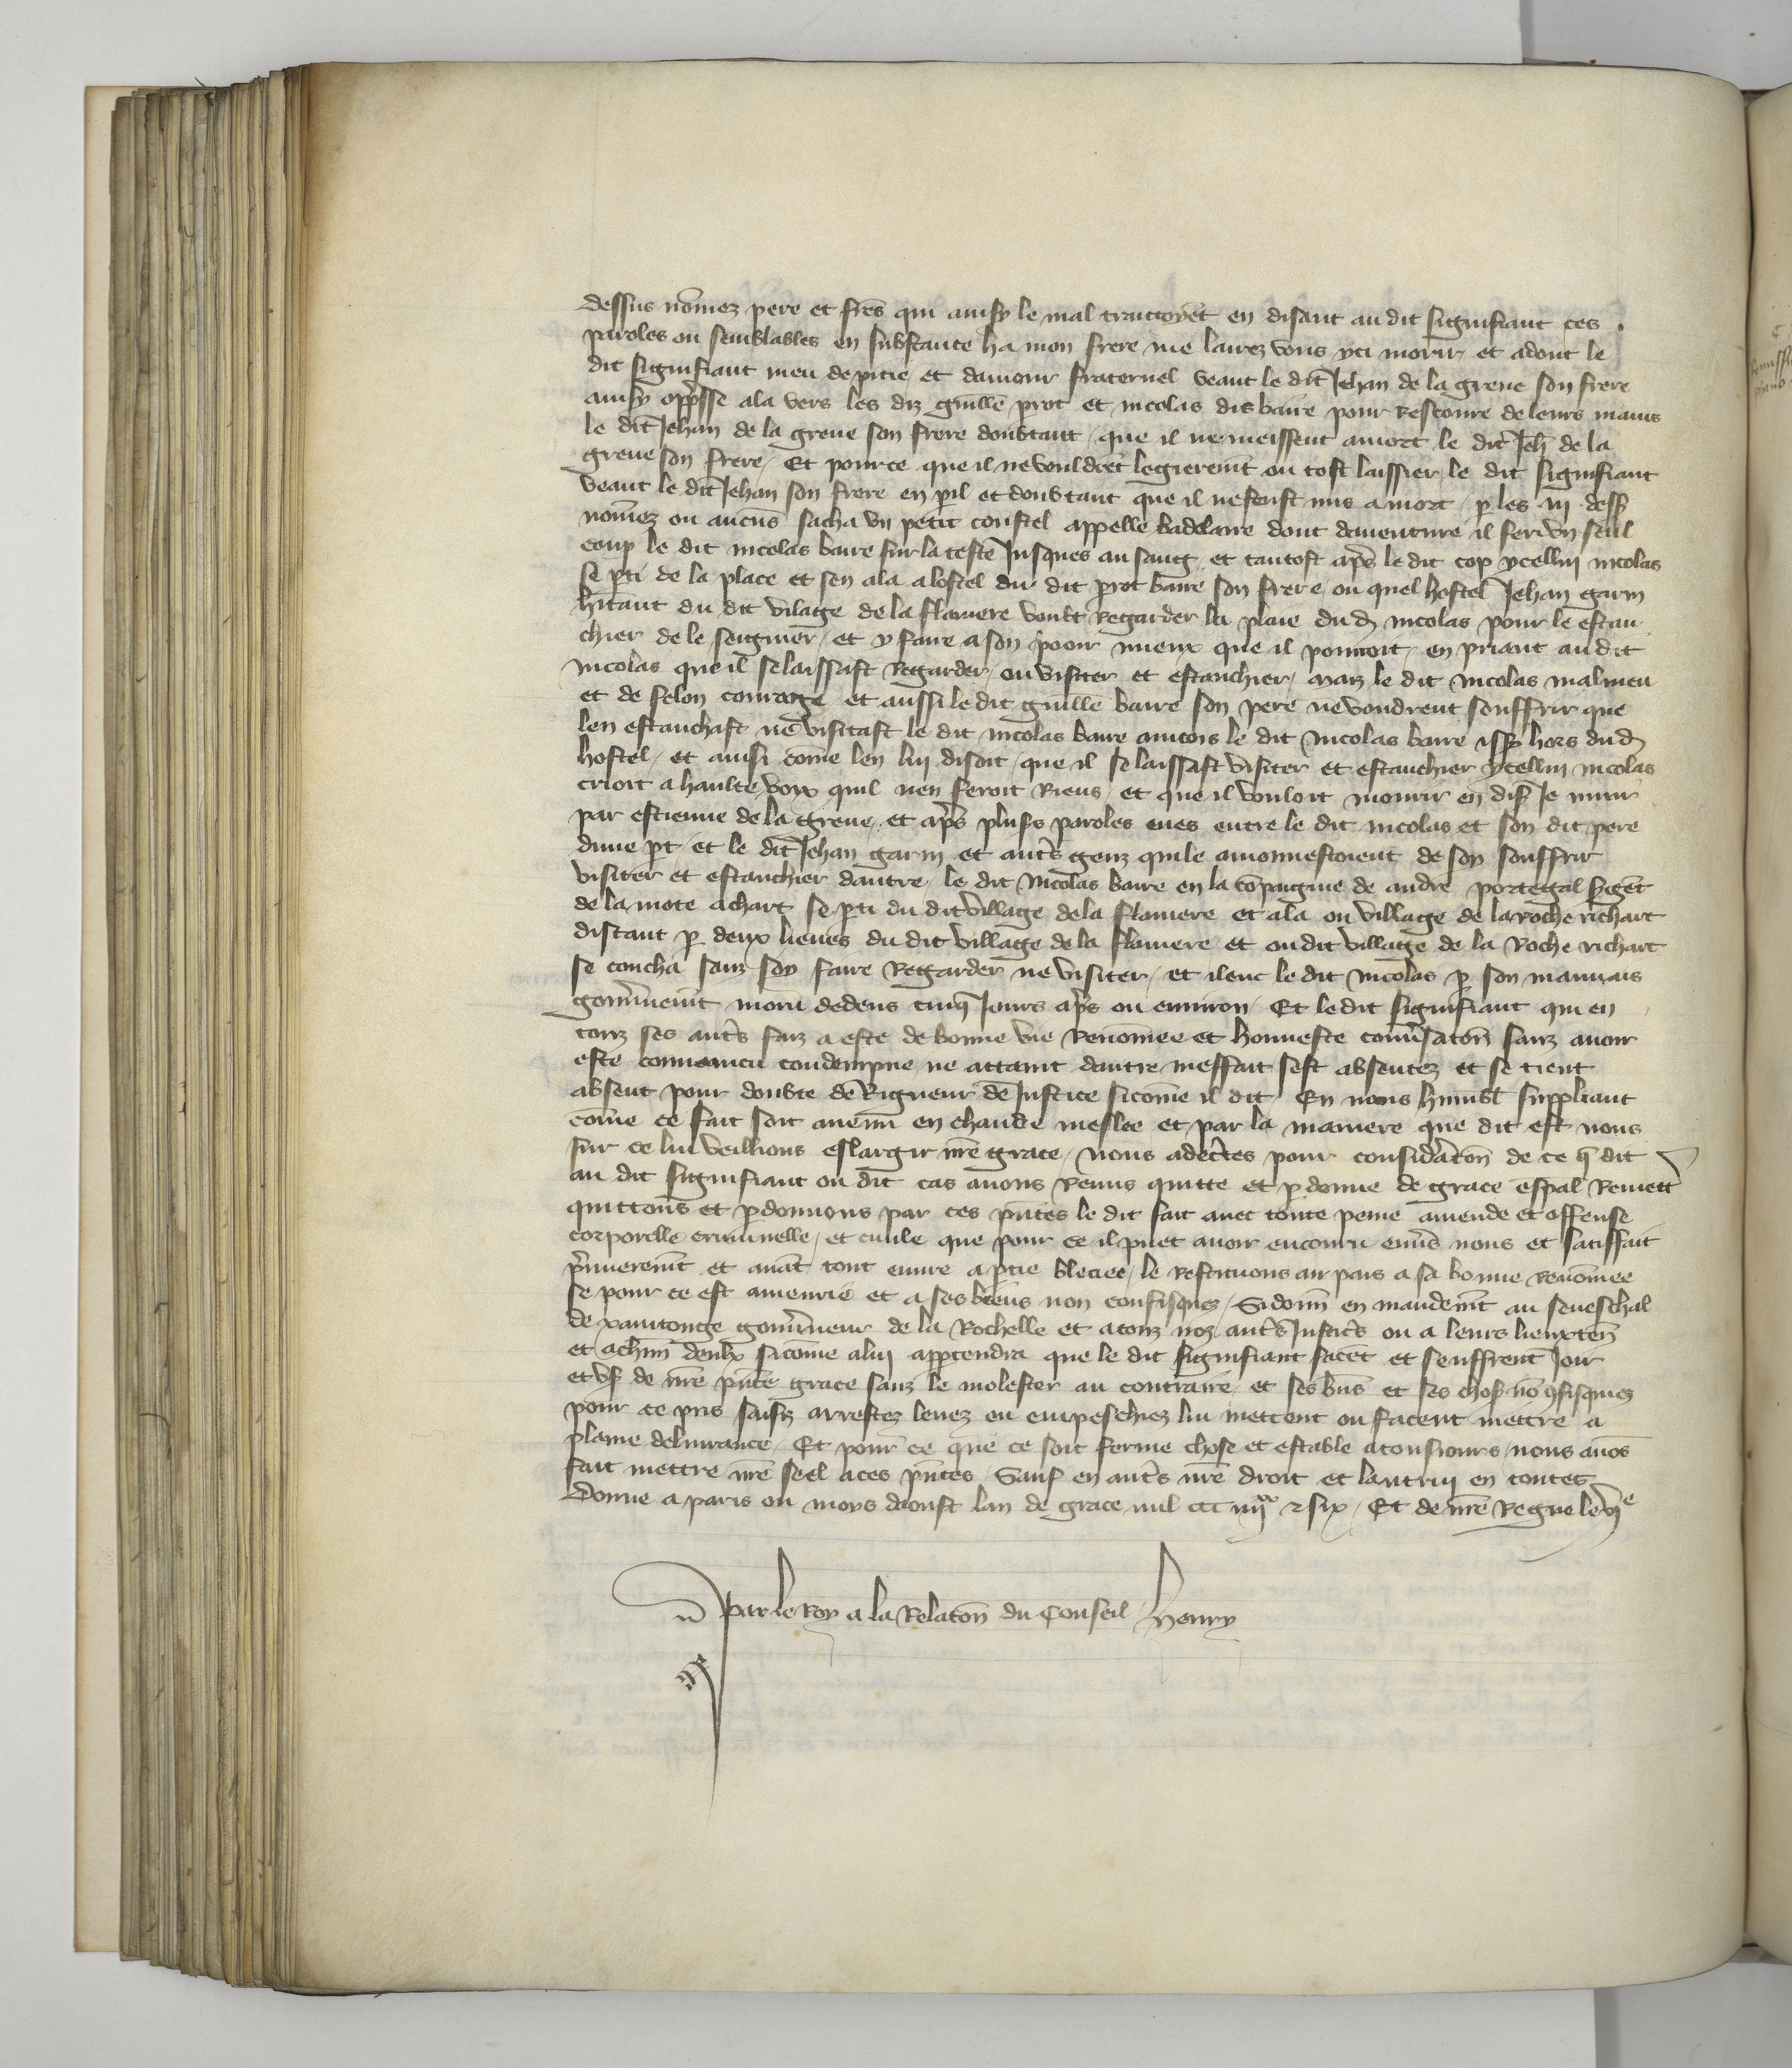 dessus nom̄ez pere et fr̄es qui ainsy le mal traictoyēt en disant au dit signifiant ces
paroles ou semblables en substance ha mon frere me lairez vous yci morir et adont le
dit signifiant meu de pitie et damour fraternel veant le dit Jehan de la greue son frere
ainsy opp̄sse ala vers les diz guill̄e p̄rot et nicolas diz baire pour rescourre de leurs mains
le dit Jehan de la greue son frere doubtant que il ne meissent a mort le dit Jeh̄ de la
greue son frere Et pource que il ne vouldrēt legierem̄t ou tost laissier le dit signifiant
veant le dit Jehan son frere en p̄il et doubtant que il ne feust mis a mort p̲ les iij dess9
nom̄ez ou aucūs sacha vn petit coustel appelle badelaire dont dauenture il feri vn seul
coup le dit nicolas baire sur la teste Jusques au sang et tantost ap̄s le dit cop ycellui nicolas
se p̲ti de la place et sen ala a lostel du dit p̄rot baire son frere ou quel hostel Jehan garin
h̄itant du dit vilage de la flamere voult Regarder la plaie dud̄ nicolas pour le estan
chier de le seignier et y faire a son pooir mieux que il pourroit en priant au dit
nicolas que il se laissast Regarder ou visiter et estanchier maiz le dit nicolas malmeu
et de felon courage et aussi le dit guill̄e baire son pere ne voudrent souffrir que
len estanchast ne visitast le dit nicolas baire aincois le dit nicolas baire iss9 hors dud̄
hostel et ainsi com̄e len lui disoit que il se laissast visiter et estanchier ycellui nicolas
crioit a haulte voix quil nen feroit Riens et que il vouloit mourir en dis9 Je muir
par estienne de la greue et ap̄s plus̄s paroles eues entre le dit nicolas et son dit pere
dune p̲t et le dit Jehan garin et aut̄s genz qui le amonnestoient de soy souffrir
visiter et estanchier dautre le dit nicolas baire en la cōpaignie de andre portegal s̄gēt
de la mote achart se p̲ti du dit village de la flamere et ala ou village de la roche richart
distant p̲ deux lieues du dit village de la flamere et ou dit village de la Roche richart
se coucha sanz soy faire Regarder ne visiter et ilenc le dit nicolas p̲ son mauuais
gouu̅nem̄t moru dedens cinq Jours ap̄s ou enuiron Et le dit signifiant qui en
touz ses aut̄s faiz a este de bonne vie Renom̄ee et honneste conu̅sacōn sanz auoir
este conuaincu condempne ne attaint dautre meffait sest absentez et se tient
absent pour doubte de Rigueur de Justice sicom̄e il dit En nous humbl̄t suppliant
com̄e ce fait soit auenu en chaude meslee et par la maniere que dit est nous
sur ce lui veillions eslargir nr̄e grace Nous adec̄tes pour consid̄acōn de ce q̄ dit
au dit signifiant ou dit cas auons Remis quitte et p̲donne de grace esp̄al Remett̄
quittons et p̲donnons par ces p̄ntes le dit fait auec toute peine amende et offense
corporelle criminelle et ciuile que pour ce il puet auoir encouru enu̅s nous et satisfait
p̄mierem̄t et auāt tout euure a p̲tie bleciee le restituons au pais a sa bonne renōmee
se pour ce est amenrie et a ses biens non confisquez Si donn̄ en mandem̄t au seneschal
de xainctonge gouu̅neur de la Rochelle et a touz noz aut̄s Justic̄s ou a leurs lieuxten̄
et a chun̄ deulx sicom̄e a lui app̲tendra que le dit signifiant facēt et seuffrent Joir
et vs9 de nr̄e p̄nte grace sanz le molester au contraire et ses bn̄s et ses chos9 nō 9fisquez
pour ce pris saisiz arrestez leuez ou empeschiez lui mettent ou facent mettre a
plaine deliurance Et pour ce que ce soit ferme chose et estable a tousiours nous auōs
fait mettre nr̄e seel a ces p̄ntes Sauf en aut̄s nr̄e droit et lautrui en toutes
Donne a paris ou moys daoust lan de grace mil ccc iiijxx & six Et de nr̄e Regne le vje
par le Roy a la Relacōn du Conseil henry